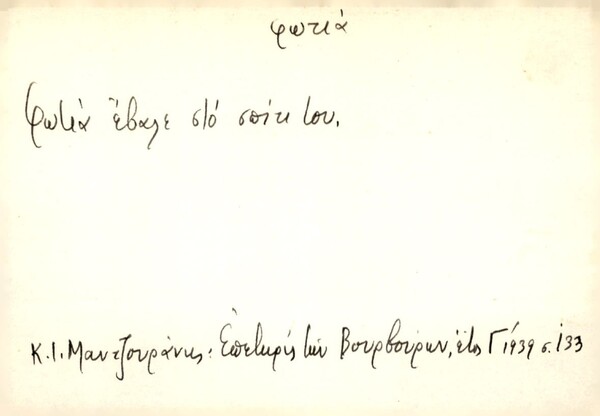 φωτιά
Φωτιά ἔβαλε στό σπίτι του.
Κ. Ι. Μαντζουράνης: Ἐπετηρίς τῶν Βουρβούρων, ἔτος Γ΄ 1939 σ. 133